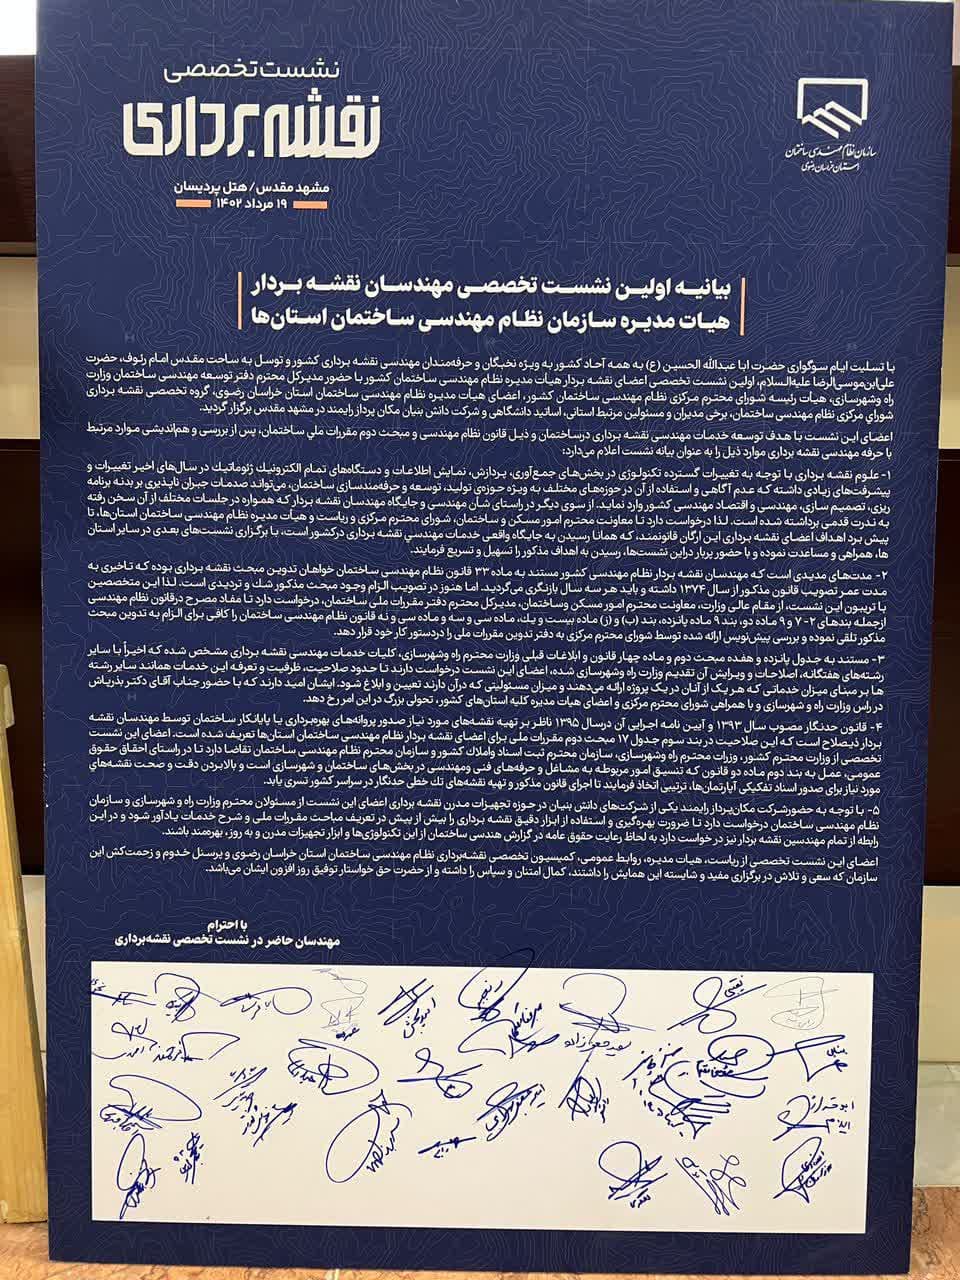 نشست تخصصی
نقشه برداری
مشهد مقدس/ هتل پردیسان
۱۹ مرداد ۱۴۰۲
سازمان نظام مهندسی ساختمان
استان خراسان رضوی
بیانیه اولین نشست تخصصی مهندسان نقشه بردار
هیات مدیره سازمان نظام مهندسی ساختمان استان‌ها
با تسلیت ایام سوگواری حضرت ابا عبدالله الحسین (ع) به همه آحاد کشور به ویژه نخبگان و حرفه‌مندان مهندسی نقشه برداری کشور و توسل به ساحت مقدس امام رئوف، حضرت
علی‌ابن‌موسی‌الرضا علیه‌السلام، اولین نشست تخصصی اعضای نقشه بردار هیأت مدیره نظام مهندسی ساختمان کشور با حضور مدیرکل محترم دفتر توسعه مهندسی ساختمان وزارت
راه وشهرسازی، هیات رئیسه شورای محترم مرکزی نظام مهندسی ساختمان کشور، اعضای هیات مدیره نظام مهندسی ساختمان استان خراسان رضوی، گروه تخصصی نقشه برداری
شورای مرکزی نظام مهندسی ساختمان، برخی مدیران و مسئولین مرتبط استانی، اساتید دانشگاهی و شرکت دانش بنیان مکان پرداز رایمند در مشهد مقدس برگزار گردید.
اعضای این نشست با هدف توسعه خدمات مهندسی نقشه برداری درساختمان و ذیل قانون نظام مهندسی و مبحث دوم مقررات ملي ساختمان، پس از بررسی و هم‌اندیشی موارد مرتبط
با حرفه مهندسی نقشه برداری موارد ذیل را به عنوان بیانه نشست اعلام می‌دارد:
۱- علوم نقشه برداری با توجه به تغییرات گسترده تکنولوژی در بخش‌های جمع‌آوری، پردازش، نمایش اطلاعات و دستگاه‌های تمام الکترونیک ژئوماتیک در سال‌های اخیر تغییرات و
پیشرفت‌های زیادی داشته که عدم آگاهی و استفاده از آن در حوزه‌های مختلف به ویژه حوزه‌ی تولید، توسعه و حرفه‌مندسازی ساختمان، می‌تواند صدمات جبران ناپذیری بر بدنه برنامه
ریزی، تصمیم سازی، مهندسی و اقتصاد مهندسی کشور وارد نماید. از سوی دیگر در راستای شأن مهندسی و جایگاه مهندسان نقشه بردار که همواره در جلسات مختلف از آن سخن رفته
به ندرت قدمی برداشته شده است. لذا درخواست دارد تا معاونت محترم امور مسکن و ساختمان، شورای محترم مرکزی و ریاست و هیات مدیره نظام مهندسی ساختمان استان‌ها، تا
پیش برد اهداف اعضای نقشه برداری این ارگان قانونمند، که همانا رسیدن به جایگاه واقعی خدمات مهندسي نقشه برداری درکشور است، با برگزاری نشست‌های بعدی در سایر استان
ها، همراهی و مساعدت نموده و با حضور پربار دراین نشست‌ها، رسیدن به اهداف مذکور را تسهیل و تسریع فرمایند.
۲- مدت‌های مدیدی است که مهندسان نقشه بردار نظام مهندسی کشور مستند به ماده ۳۳ قانون نظام مهندسی ساختمان خواهان تدوین مبحث نقشه برداری بوده که تاخیری به
مدت عمر تصویب قانون مذکور از سال ۱۳۷۴ داشته و باید هر سه سال بازنگری می‌گردید. اما هنوز در تصویب الزام وجود مبحث مذکور شك و تردیدی است. لذا این متخصصین
با تریبون این نشست، از مقام عالی وزارت، معاونت محترم امور مسکن وساختمان، مدیرکل محترم دفتر مقررات ملی ساختمان، درخواست دارد تا مفاد مصرح درقانون نظام مهندسی
ازجمله بندهای ۲-۷ و ۹ ماده دو، بند ۹ ماده پانزده، بند (ب) و (ز) ماده بیست و یك، ماده سی و سه و ماده سی و نه قانون نظام مهندسی ساختمان را کافی برای الزام به تدوین مبحث
مذکور تلقی نموده و بررسی پیش‌نویس ارائه شده توسط شورای محترم مرکزی به دفتر تدوین مقررات ملی را دردستور کار خود قرار دهد.
۳- مستند به جدول پانزده و هفده مبحث دوم و ماده چهار قانون و ابلاغات قبلی وزارت محترم راه وشهرسازی، کلیات خدمات مهندسی نقشه برداری مشخص شده که اخیراً با سایر
رشته‌های هفتگانه، اصلاحات و ویرایش آن تقدیم وزارت راه وشهرسازی شده، اعضای این نشست درخواست دارند تا حدود صلاحیت، ظرفیت و تعرفه این خدمات همانند سایر رشته
ها بر مبنای میزان خدماتی که هر یک از آنان در یک پروژه ارائه می‌دهند و میزان مسئولیتی که درآن دارند تعیین و ابلاغ شود. ایشان امید دارند که با حضور جناب آقای دکتر بذرپاش
در راس وزارت راه و شهرسازی و با همراهی شورای محترم مرکزی و اعضای هیات مدیره کلیه استان‌های کشور، تحولی بزرگ در این امر رخ دهد.
۴- قانون حدنگار مصوب سال ۱۳۹۳ و آیین نامه اجرایی آن درسال ۱۳۹۵ ناظر بر تهیه نقشه‌های مورد نیاز صدور پروانه‌های بهره‌برداری یا پایانکار ساختمان توسط مهندسان نقشه
بردار ذیصلاح است که این صلاحیت در بند سوم جدول ۱۷ مبحث دوم مقررات ملی برای اعضای نقشه بردار نظام مهندسی ساختمان استان‌ها تعریف شده است. اعضای این نشست
تخصصی از وزارت محترم کشور، وزرات محترم راه وشهرسازی، سازمان محترم ثبت اسناد واملاك کشور و سازمان محترم نظام مهندسی ساختمان تقاضا دارد تا در راستای احقاق حقوق
عمومی، عمل به بند دوم ماده دو قانون که تنسیق امور مربوطه به مشاغل و حرفه‌های فنی ومهندسی در بخش‌های ساختمان و شهرسازی است و بالابردن دقت و صحت نقشه‌هاي
مورد نیاز برای صدور اسناد تفکیکی آپارتمان‌ها، ترتیبی اتخاذ فرمایند تا اجرای قانون مذکور و تهیه نقشه‌های تك خطی حدنگار در سراسر کشور تسری یابد.
۵- با توجه به حضورشرکت مکان‌پرداز رایمند یکی از شرکت‌های دانش بنیان در حوزه تجهیزات مدرن نقشه برداری اعضای این نشست از مسئولان محترم وزارت راه و شهرسازی و سازمان
نظام مهندسی ساختمان درخواست دارد تا ضرورت بهره‌گیری و استفاده از ابزار دقیق نقشه برداری را بیش از پیش در تعریف مباحث مقررات ملی و شرح خدمات یادآور شود و در این
رابطه از تمام مهندسین نقشه بردار نیز درخواست دارد به لحاظ رعایت حقوق عامه در گزارش هندسی ساختمان از این تکنولوژی‌ها و ابزار تجهیزات مدرن و به روز، بهره‌مند باشند.
اعضای این نشست تخصصی از ریاست، هیات مدیره، روابط عمومی، کمیسیون تخصصی نقشه‌برداری نظام مهندسی ساختمان استان خراسان رضوی و پرسنل خدوم و زحمت‌کش این
سازمان که سعی و تلاش در برگزاری مفید و شایسته این همایش را داشتند، کمال امتنان و سپاس را داشته و از حضرت حق خواستار توفیق روز افزون ایشان می‌باشد.
با احترام
مهندسان حاضر در نشست تخصصی نقشه‌برداری